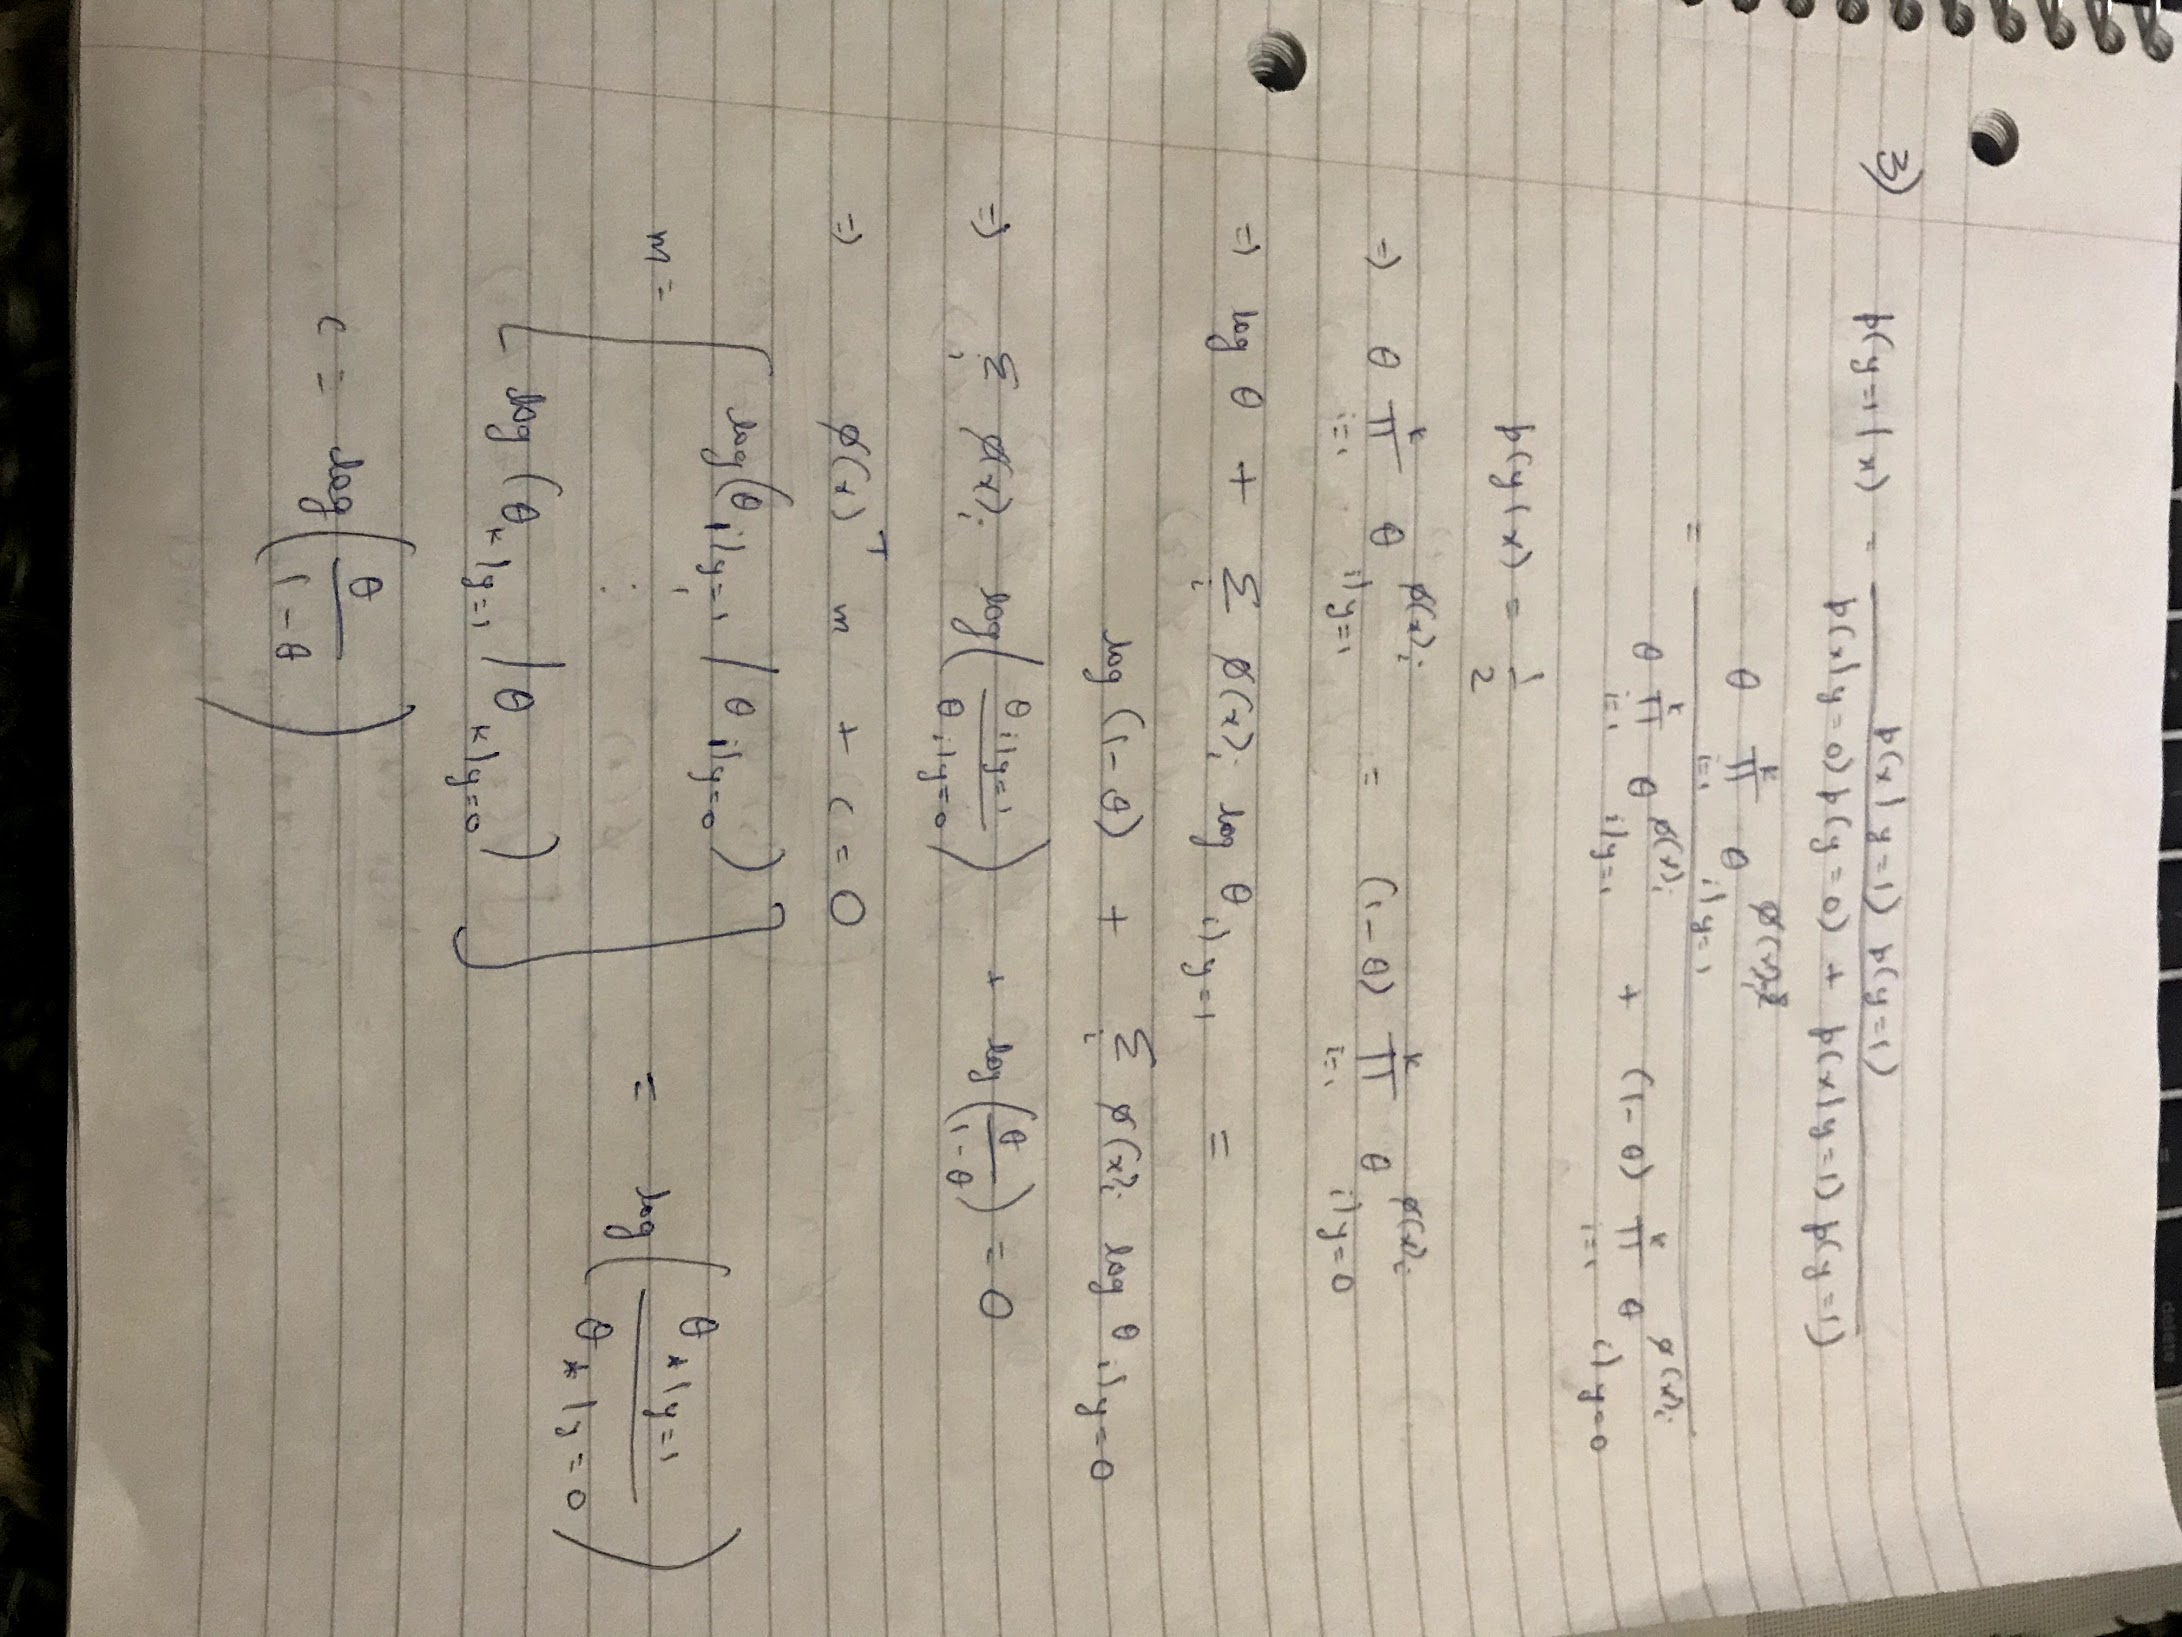 3) p(y=1|x) = p(x|y=1) p(y=1) / p(x|y=0) p(y=0) + p(x|y=1) p(y=1)
= θ ∏_{i=1}^{k} θ_{i|y=1}^{φ(x)_i} / θ ∏_{i=1}^{k} θ_{i|y=1}^{φ(x)_i} + (1-θ) ∏_{i=1}^{k} θ_{i|y=0}^{φ(x)_i}
p(y|x) = 1/2
=> θ ∏_{i=1}^{k} θ_{i|y=1}^{φ(x)_i} = (1-θ) ∏_{i=1}^{k} θ_{i|y=0}^{φ(x)_i}
=> log θ + Σ_i φ(x)_i log θ_{i|y=1} =
log (1-θ) + Σ_i φ(x)_i log θ_{i|y=0}
=> Σ_i φ(x)_i log(θ_{i|y=1} / θ_{i|y=0}) + log(θ / 1-θ) = 0
=> φ(x)^T m + c = 0
m = [ log(θ_{1|y=1} / θ_{1|y=0})
⋮ = log(θ_{*|y=1} / θ_{*|y=0})
log(θ_{k|y=1} / θ_{k|y=0}) ]
c = log(θ / 1-θ)